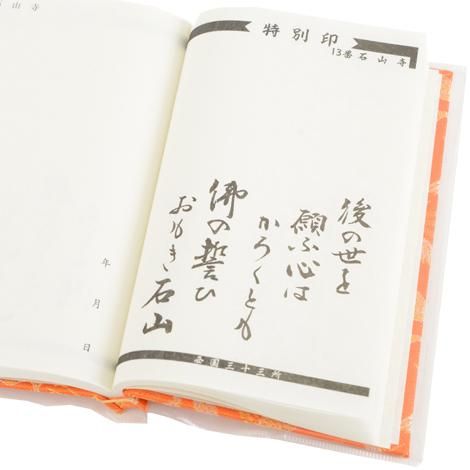 特別印
13番石山寺
後の世を
願ふ心は
かろくとも
佛の誓ひ
おもき石山
西国三十三所
山寺
年
月
日